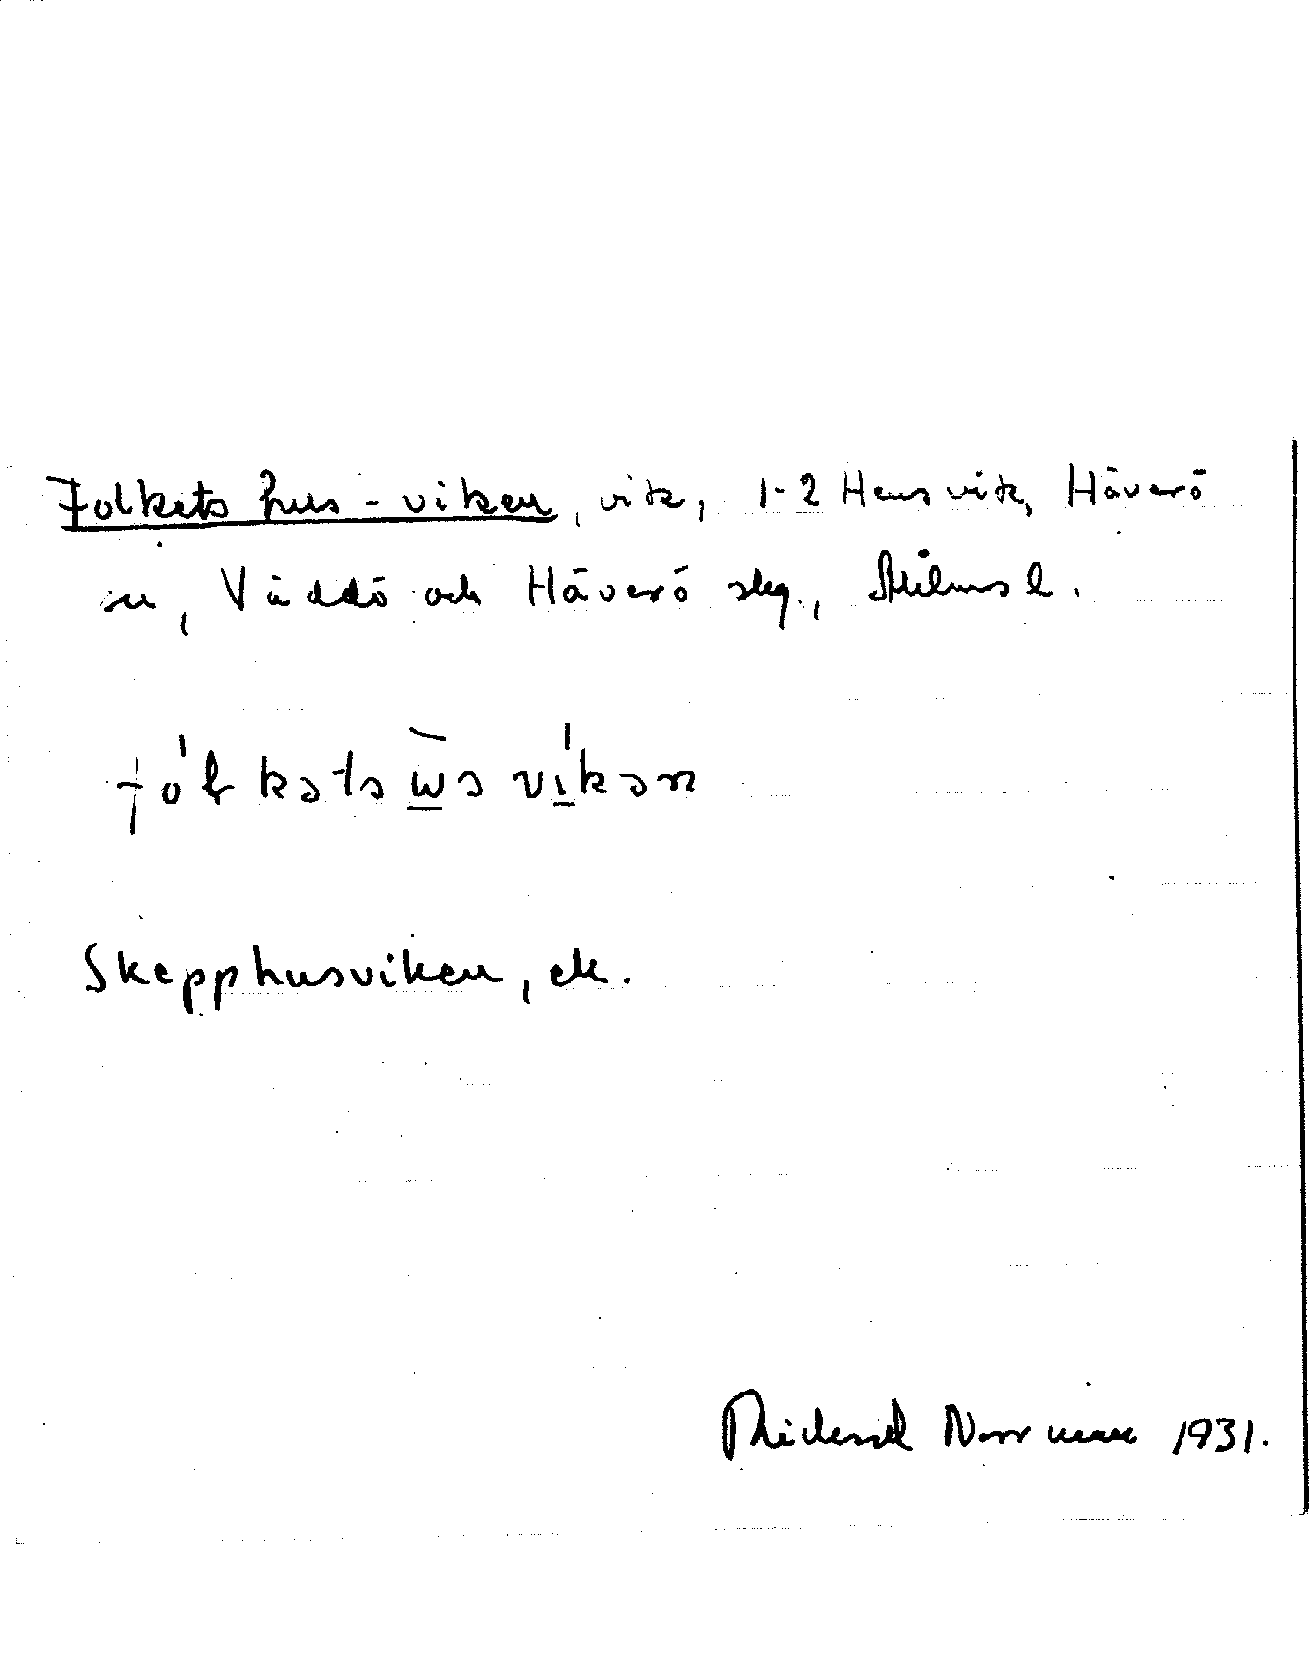 Folkets hus-viken, vik, 1-2 Hensvik, Häverö
sn, Väddö och Häverö skg., Sthlms l.
fólkətsùsvíkən
Skepphusviken, ek.
Rickard Norrman 1931.